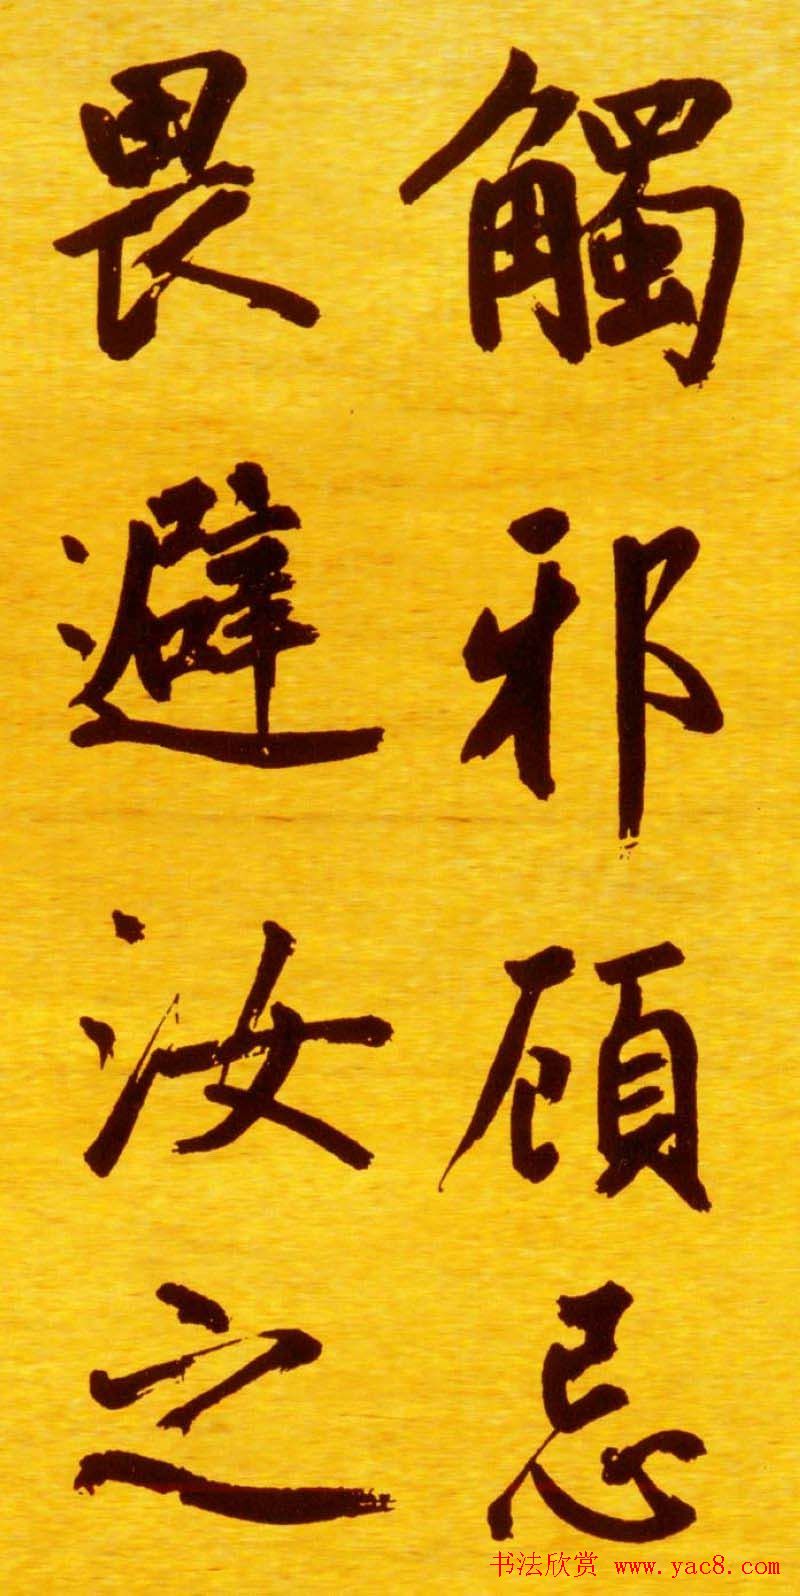 觸邪顧忌
畏避汝之
书法欣赏 www.yac8.com